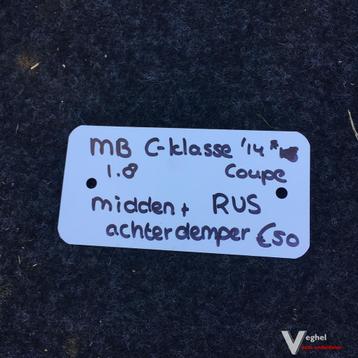 MB C-klasse '14
1.8 Coupe
midden + RUS
achterdemper €50
Veghel